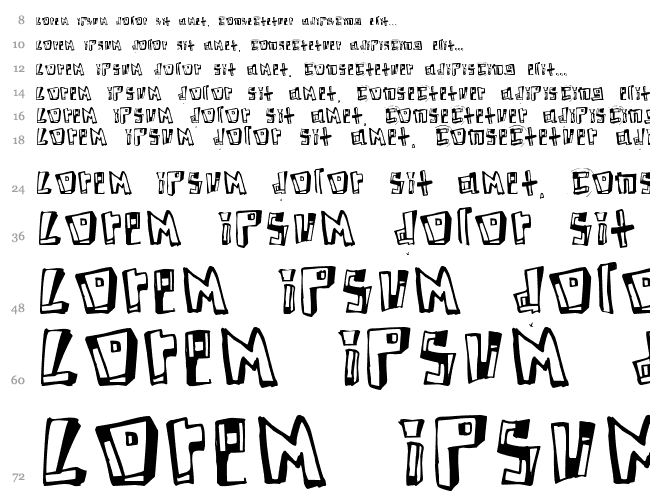 8 Lorem ipsum dolor sit amet, consectetuer adipiscing elit...
10 Lorem ipsum dolor sit amet, consectetuer adipiscing elit...
12 Lorem ipsum dolor sit amet, consectetuer adipiscing elit...
14 Lorem ipsum dolor sit amet, consectetuer adipiscing elit
16 Lorem ipsum dolor sit amet, consectetuer adipiscing
18 Lorem ipsum dolor sit amet, consectetuer adi
24 Lorem ipsum dolor sit amet, cons
36 Lorem ipsum dolor sit
48 Lorem ipsum dolo
60 Lorem ipsum d
72 Lorem ipsum